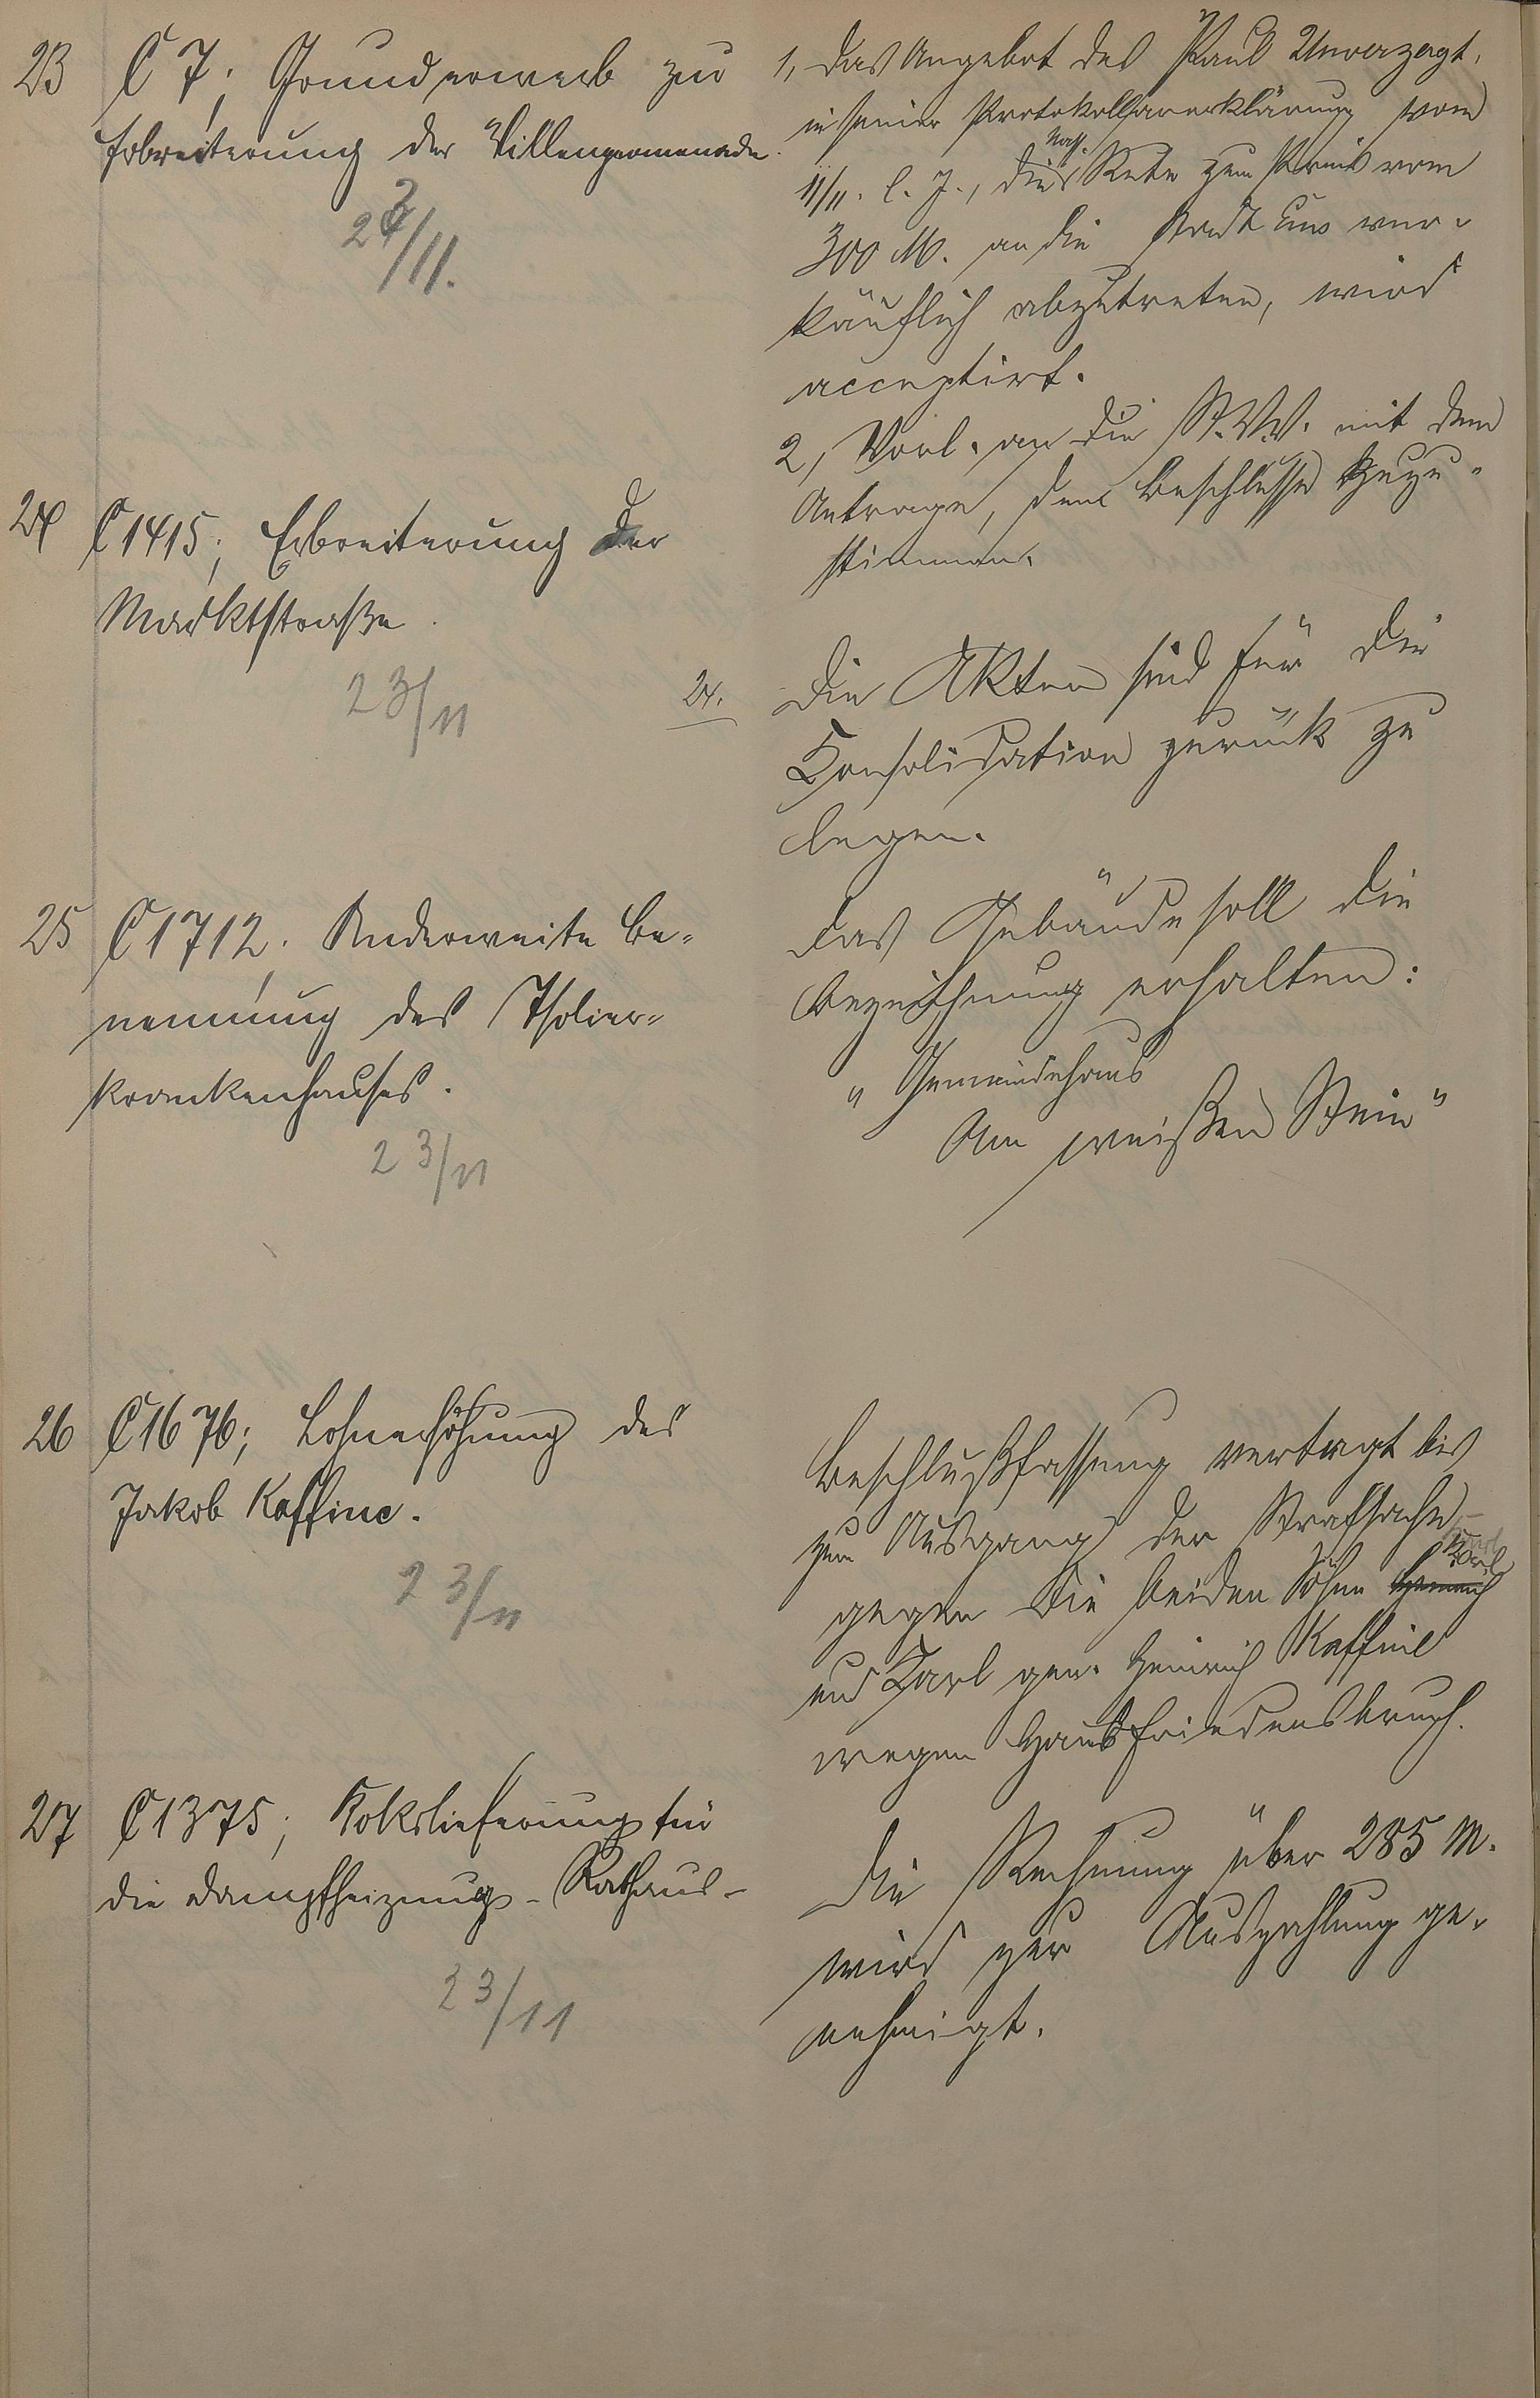 23 C 7; Grunderwerb zur
Erbreiterung der Villenpromenade.
23/11.
1, Das Angebot des Paul Unverzagt,
in seiner Protokollarerklärung vom
11/11. l. J., die Nass. Rute zum Preis von
300 M. an die Stadt Ems ver-
käuflich abzutreten, wird
acceptirt.
2, Vorl. an die St. V. V. mit dem
Antrage, dem Beschlusse zuzu-
stimmen.
24 C 1415; Erbreiterung der
Marktstraße.
23/11
24. Die Akten sind für die
Konsolidation zurück zu
legen.
25 C 1712; Anderweite Be-
nennung des Isolier-
krankenhauses.
23/11
Das Gebäude soll die
Bezeichnung erhalten:
"Gemeindehaus
Am weißen Stein"
26 C 1676; Lohnerhöhung des
Jakob Kaffine.
23/11
Beschlußfassung vertagt bis
zum Ausgang der Strafsache
gegen die beiden Söhne Heinrich Karl
und Karl gen. Heinrich Kaffine
wegen Hausfriedensbruch.
27 C 1375; Kokslieferung für
die Dampfheizung - Rathaus -
23/11
Die Rechnung über 285 M.
wird zur Auszahlung ge-
nehmigt.